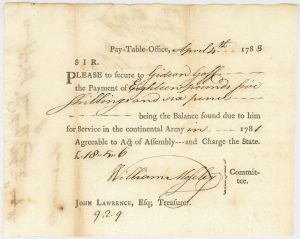 Pay-Table-Office, April 4th 1783
SIR.
PLEASE to secure to Gideon Goff
the Payment of Eighteen pounds five
shillings and six pence
being the Balance found due to him
for Service in the continental Army in 1781
Agreeable to Act of Assembly---and Charge the State.
£18.5.6
William Moseley } Commit-
tee.
JOHN LAWRENCE, Esq; Treasurer.
929